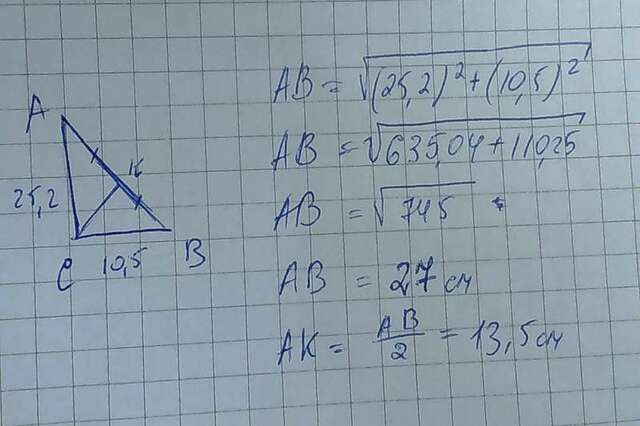 A
K
25,2
C 10,5 B
AB = √(25,2)² + (10,5)²
AB = √635,04 + 110,25
AB = √745
AB = 27 см
AK = AB/2 = 13,5 см